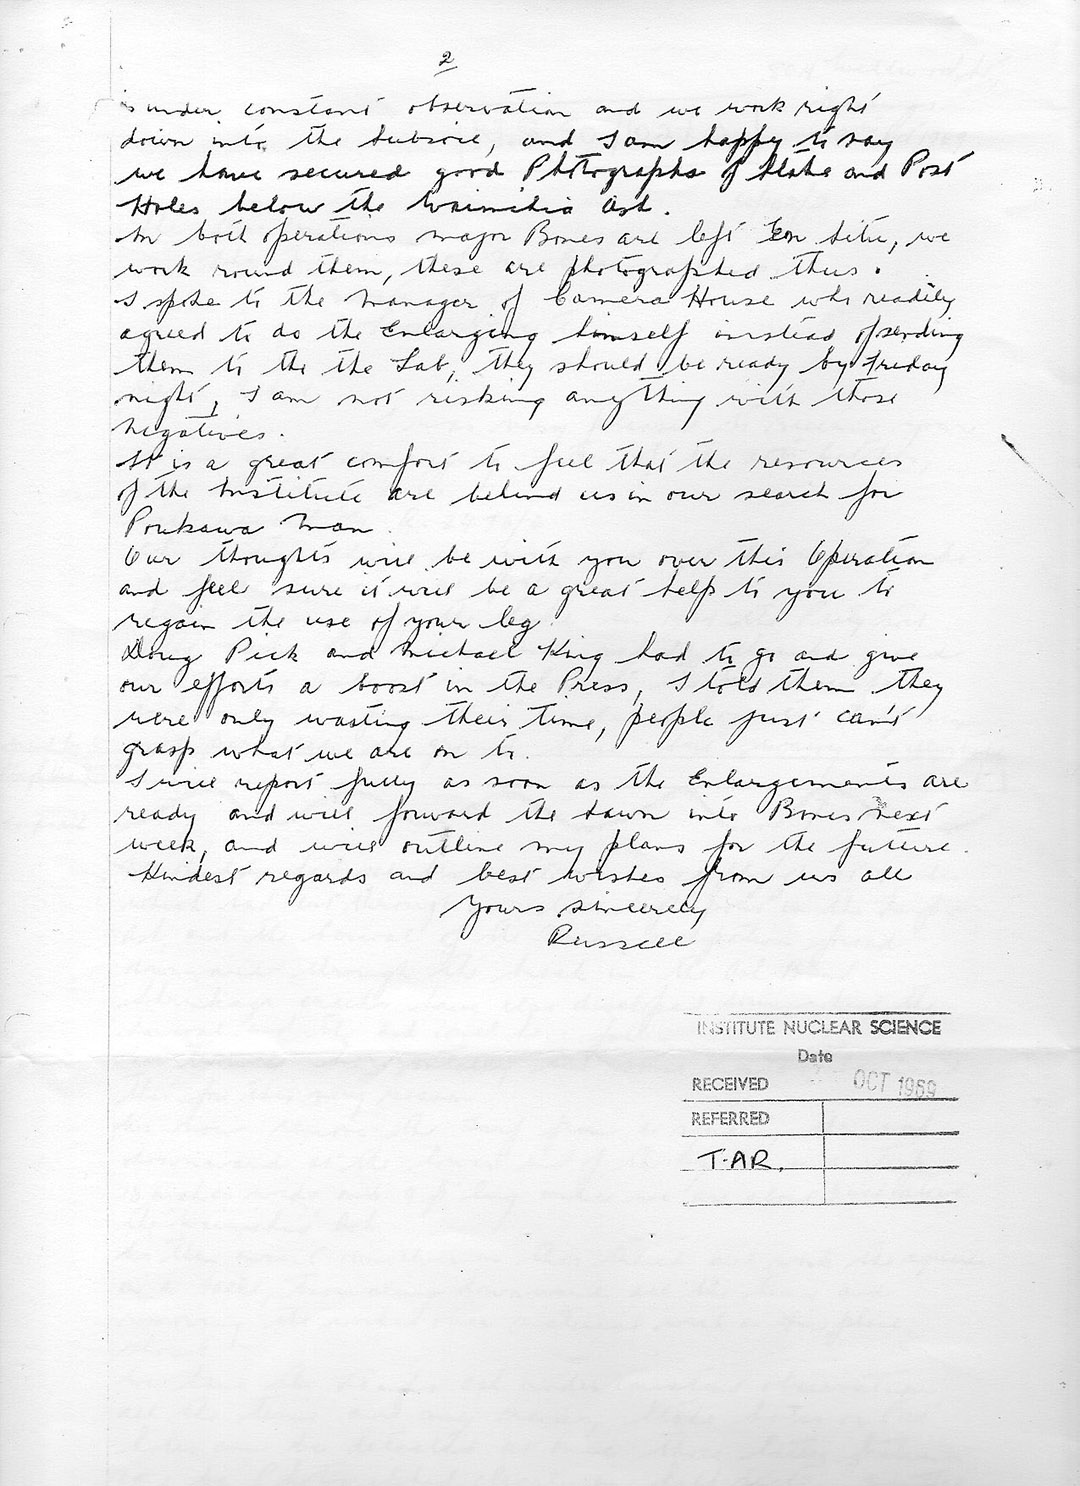 2
is under constant observation and we work right
down into the subsoil, and I am happy to say
we have secured good Photographs of Stake and Post
Holes below the Waimihia Ash.
In both operations major Bones are left En Situ, we
work round them, these are photographed thus.
I spoke to the Manager of Camera House who readily
agreed to do the Enlarging himself instead of sending
them to the the Lab, they should be ready by Friday
night, I am not risking anything with those
negatives.
It is a great comfort to feel that the resources
of the Institute are behind us in our search for
Poukawa Man.
Our thoughts will be with you over this Operation
and feel sure it will be a great help to you to
regain the use of your leg.
Doug Pick and Michael King had to go and give
our efforts a boost in the Press, I told them they
were only wasting their time, people just can't
grasp what we are on to.
I will report fully as soon as the Enlargements are
ready and will forward the sawn into Bones next
week, and will outline my plans for the future.
Kindest regards and best wishes from us all
Yours sincerely
Russell
INSTITUTE NUCLEAR SCIENCE
Date
RECEIVED OCT 1969
REFERRED
T.A.R.